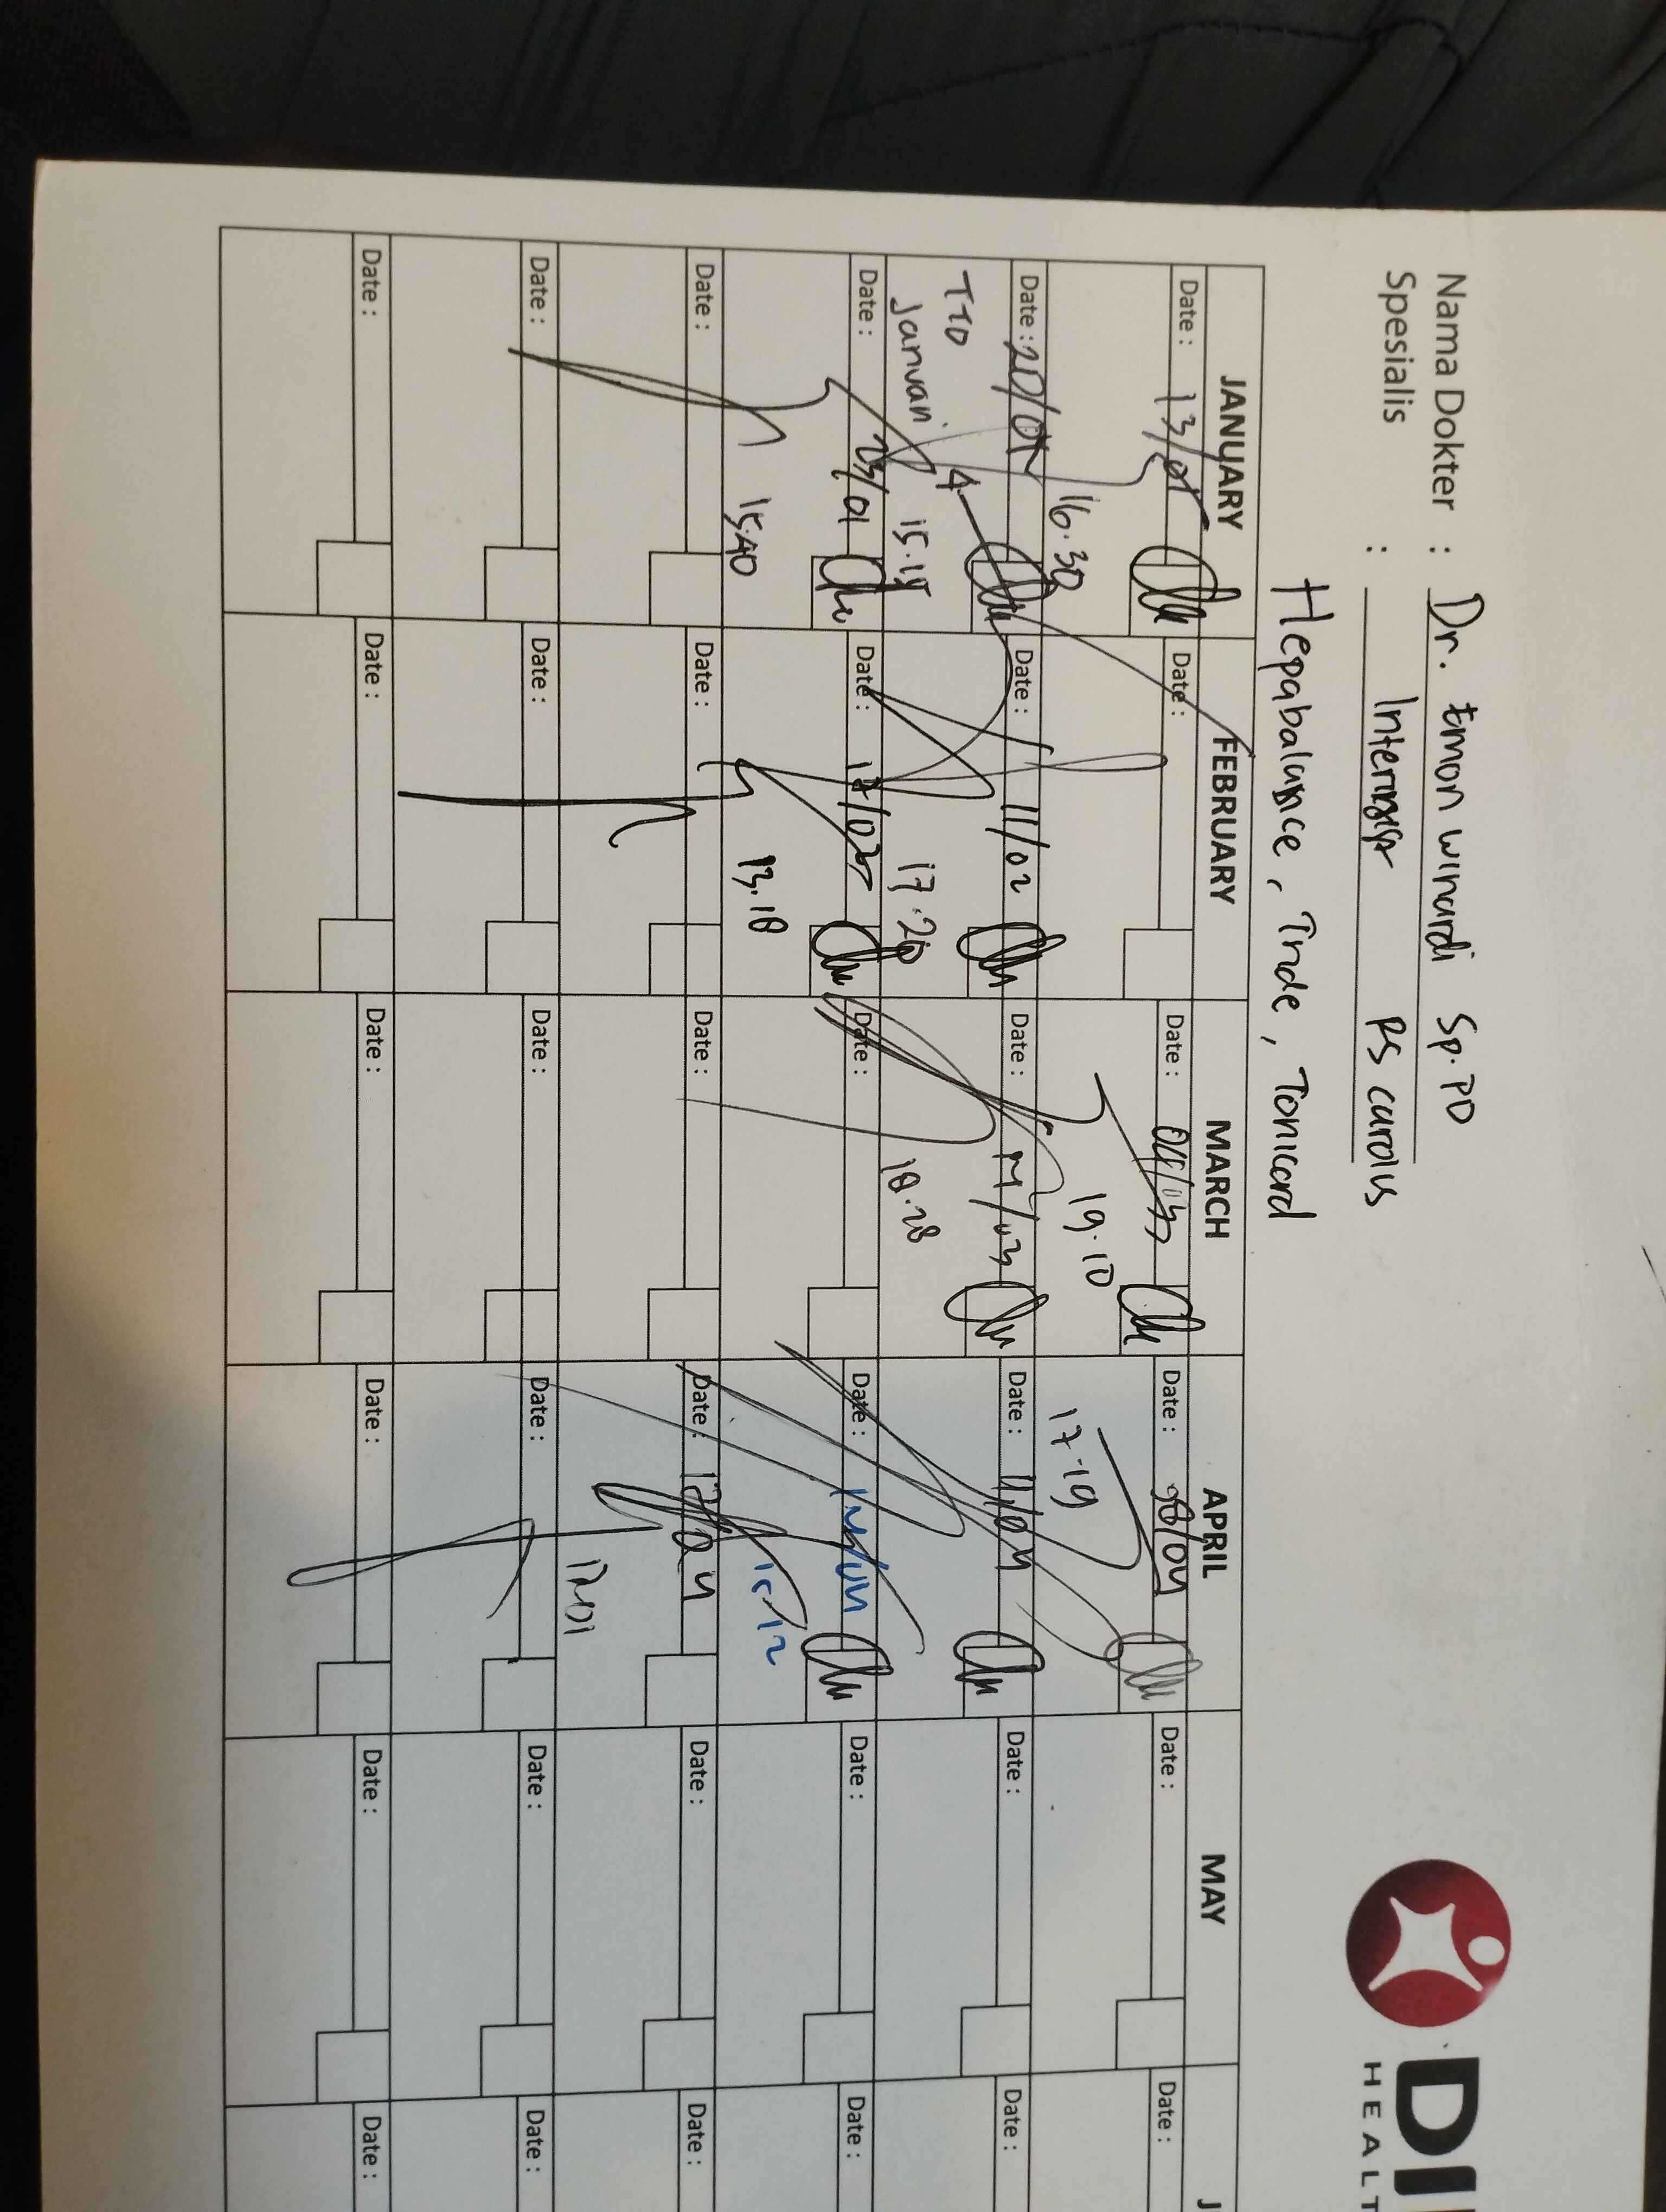 Nama Dokter : Dr. Emon winardi Sp.PD
Spesialis : Internist RS carolus
Hepabalance, Tride, Tonicard
DI
HEALT
JANUARY FEBRUARY MARCH APRIL MAY J
Date : 13/01 Date : Date : 04/03 Date : 08/04 Date : Date :
16.30 19.10 17.19
Date : 20/01 Date : 11/02 Date : Date : 11/04 Date : Date :
TTD
Januari 15.15 17.20 18.28
Date : 23/01 Date : Date : Date : Date : Date :
15.40 13.18 15.12
Date : Date : Date : Date : Date : Date :
Date : Date : Date : Date : Date : Date :
Date : Date : Date : Date : Date : Date :